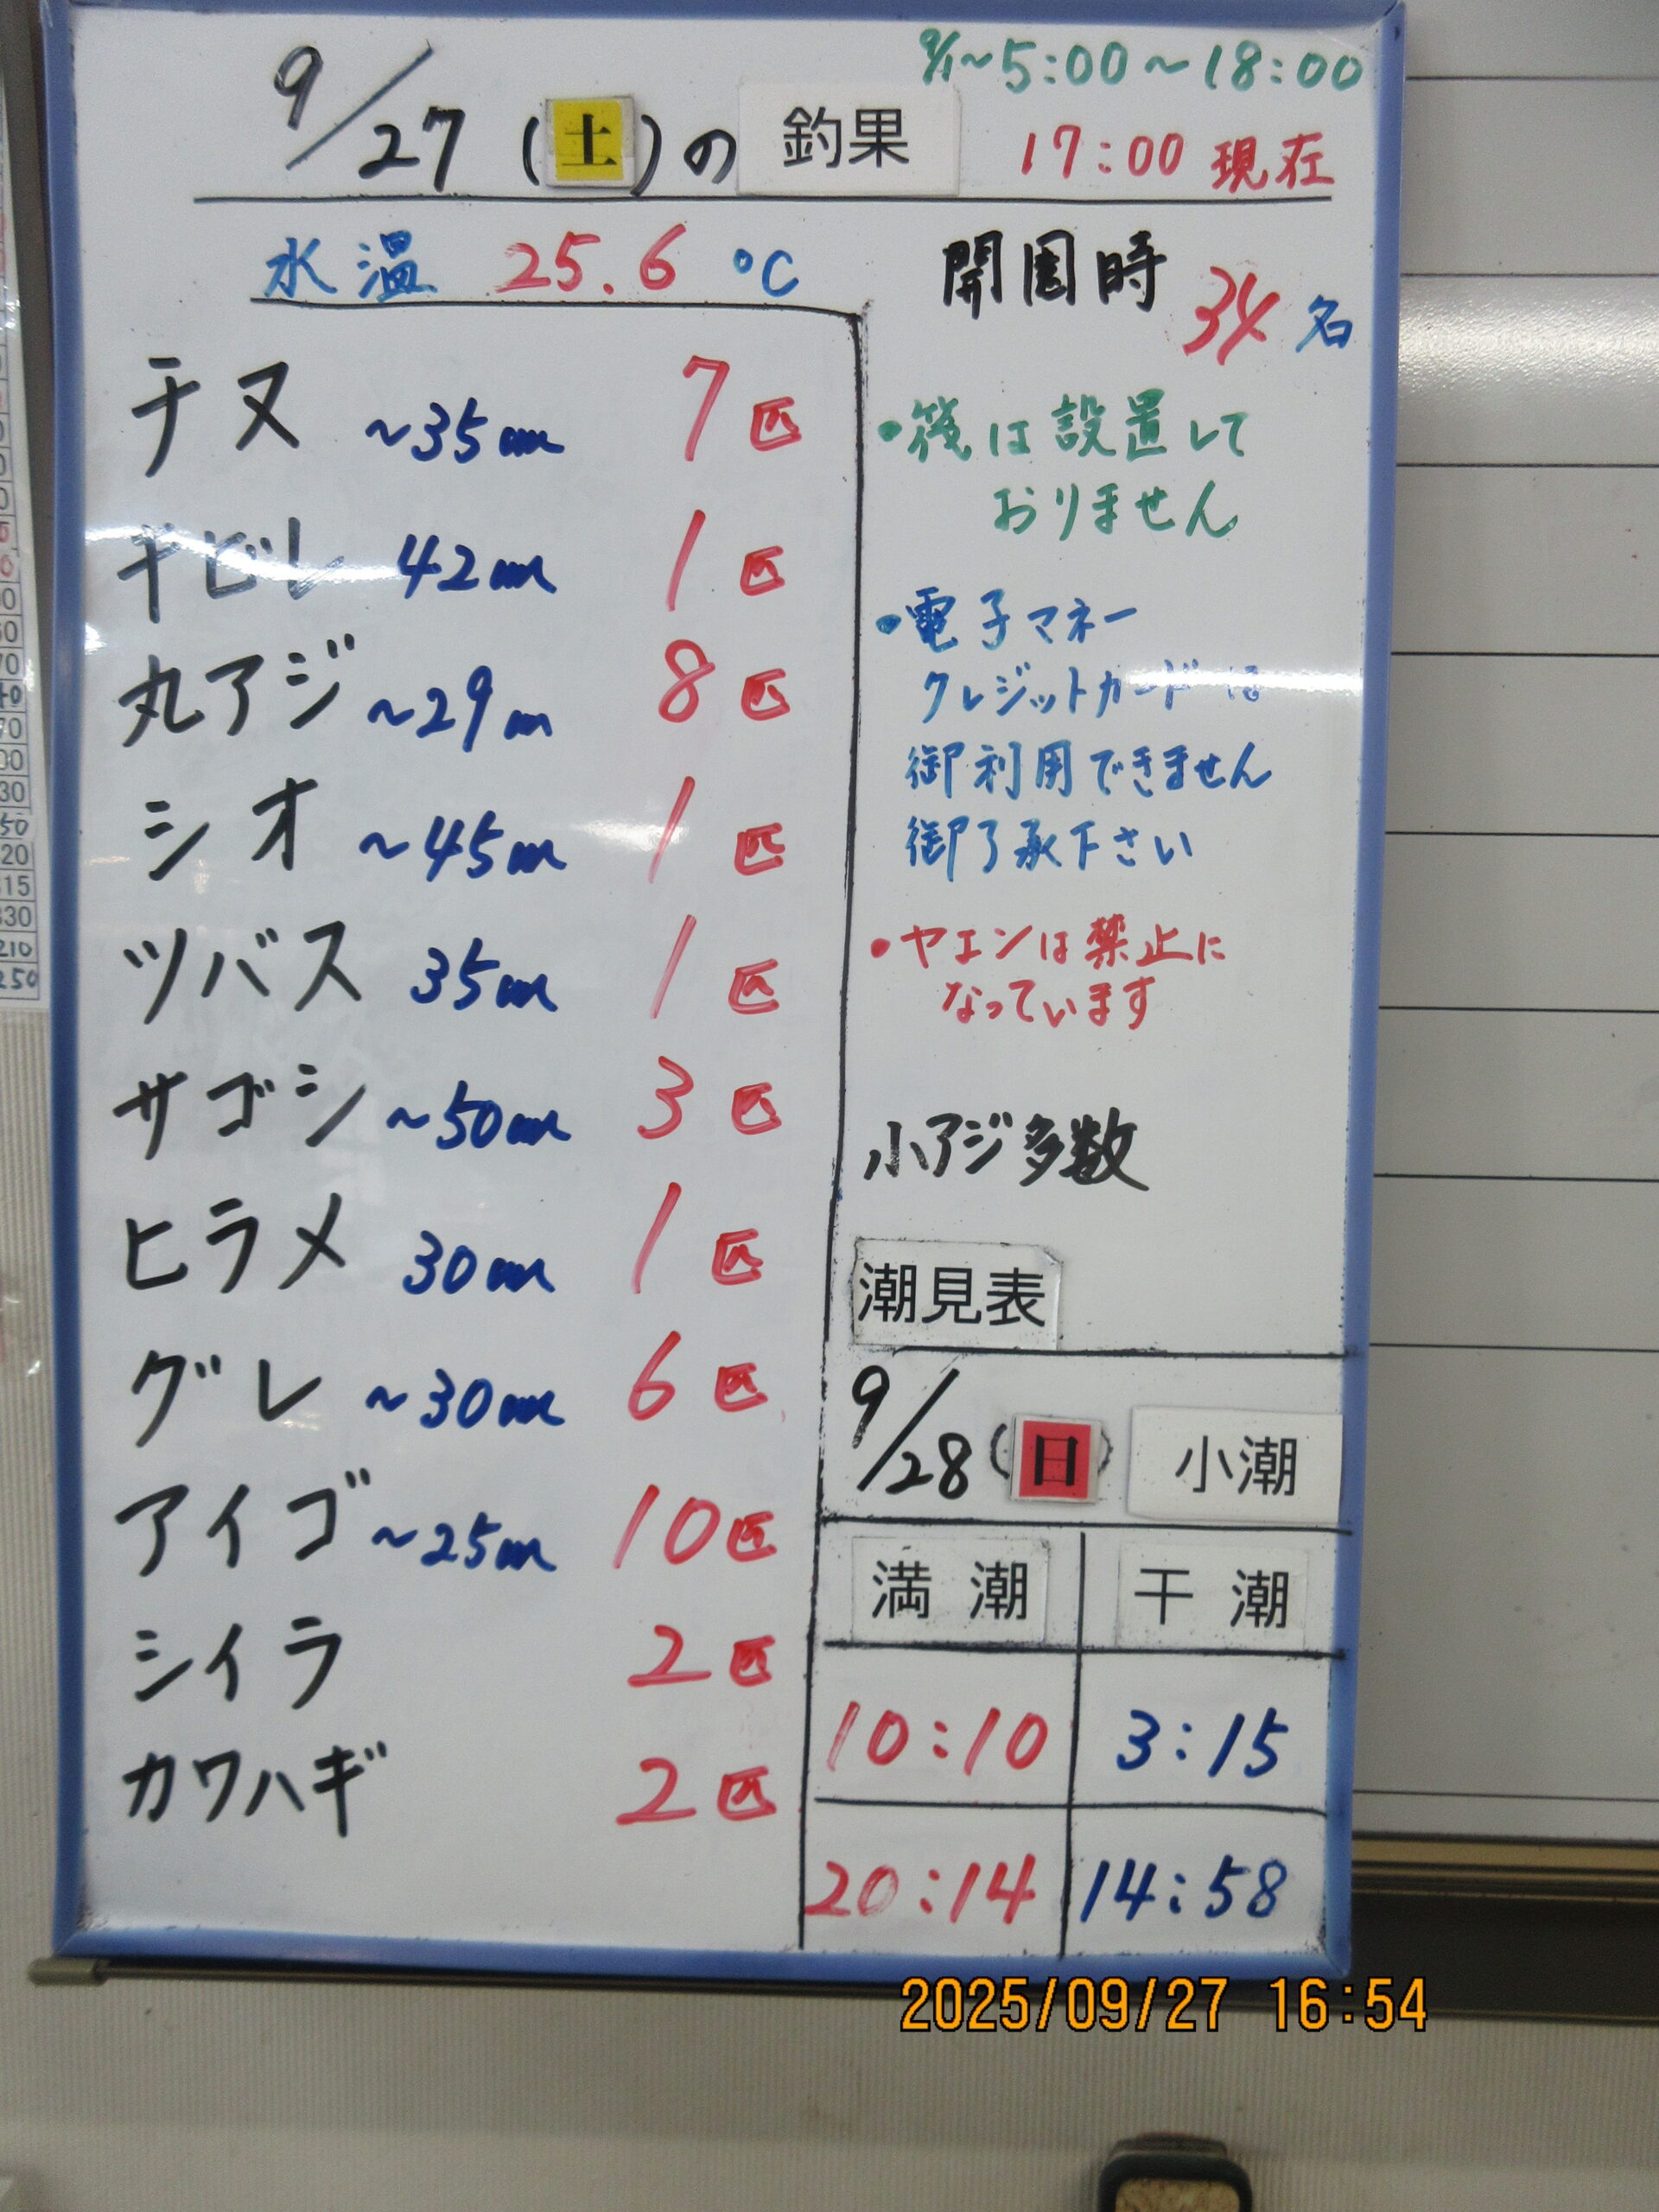 9/1~5:00~18:00
9/27(土)の釣果 17:00現在
水温 25.6℃
開園時 34名
チヌ ~35cm 7匹
キビレ 42cm 1匹
丸アジ ~29cm 8匹
シオ ~45cm 1匹
ツバス 35cm 1匹
サゴシ ~50cm 3匹
ヒラメ 30cm 1匹
グレ ~30cm 6匹
アイゴ ~25cm 10匹
シイラ 2匹
カワハギ 2匹
・筏は設置して
おりません
・電子マネー
クレジットカードは
御利用できません
御了承下さい
・ヤエンは禁止に
なっています
小アジ多数
潮見表
9/28(日) 小潮
満潮 干潮
10:10 3:15
20:14 14:58
2025/09/27 16:54